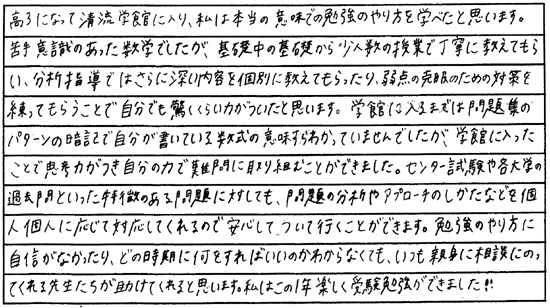 高3になって清流学館に入り、私は本当の意味での勉強のやり方を学べたと思います。
苦手意識のあった数学でしたが、基礎中の基礎から少人数の授業で丁寧に教えてもら
い、分析指導ではさらに深い内容を個別に教えてもらったり、弱点の克服のための対策を
練ってもらうことで自分でも驚くくらい力がついたと思います。学館に入るまでは問題集の
パターンの暗記で自分が書いている数式の意味すらわかっていませんでしたが、学館に入った
ことで思考力がつき自分の力で難問に取り組むことができました。センター試験や各大学の
過去問といった特徴のある問題に対しても、問題の分析やアプローチのしかたなどを個
人個人に応じて対応してくれるので安心してついて行くことができます。勉強のやり方に
自信がなかったり、どの時期に何をすればいいのかわからなくても、いつも親身に相談にのっ
てくれる先生たちが助けてくれると思います。私はこの1年楽しく受験勉強ができました!!